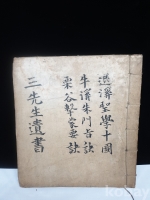 退溪聖學十圖
牛溪朱門旨訣
栗谷擊蒙要訣
三先生遺書